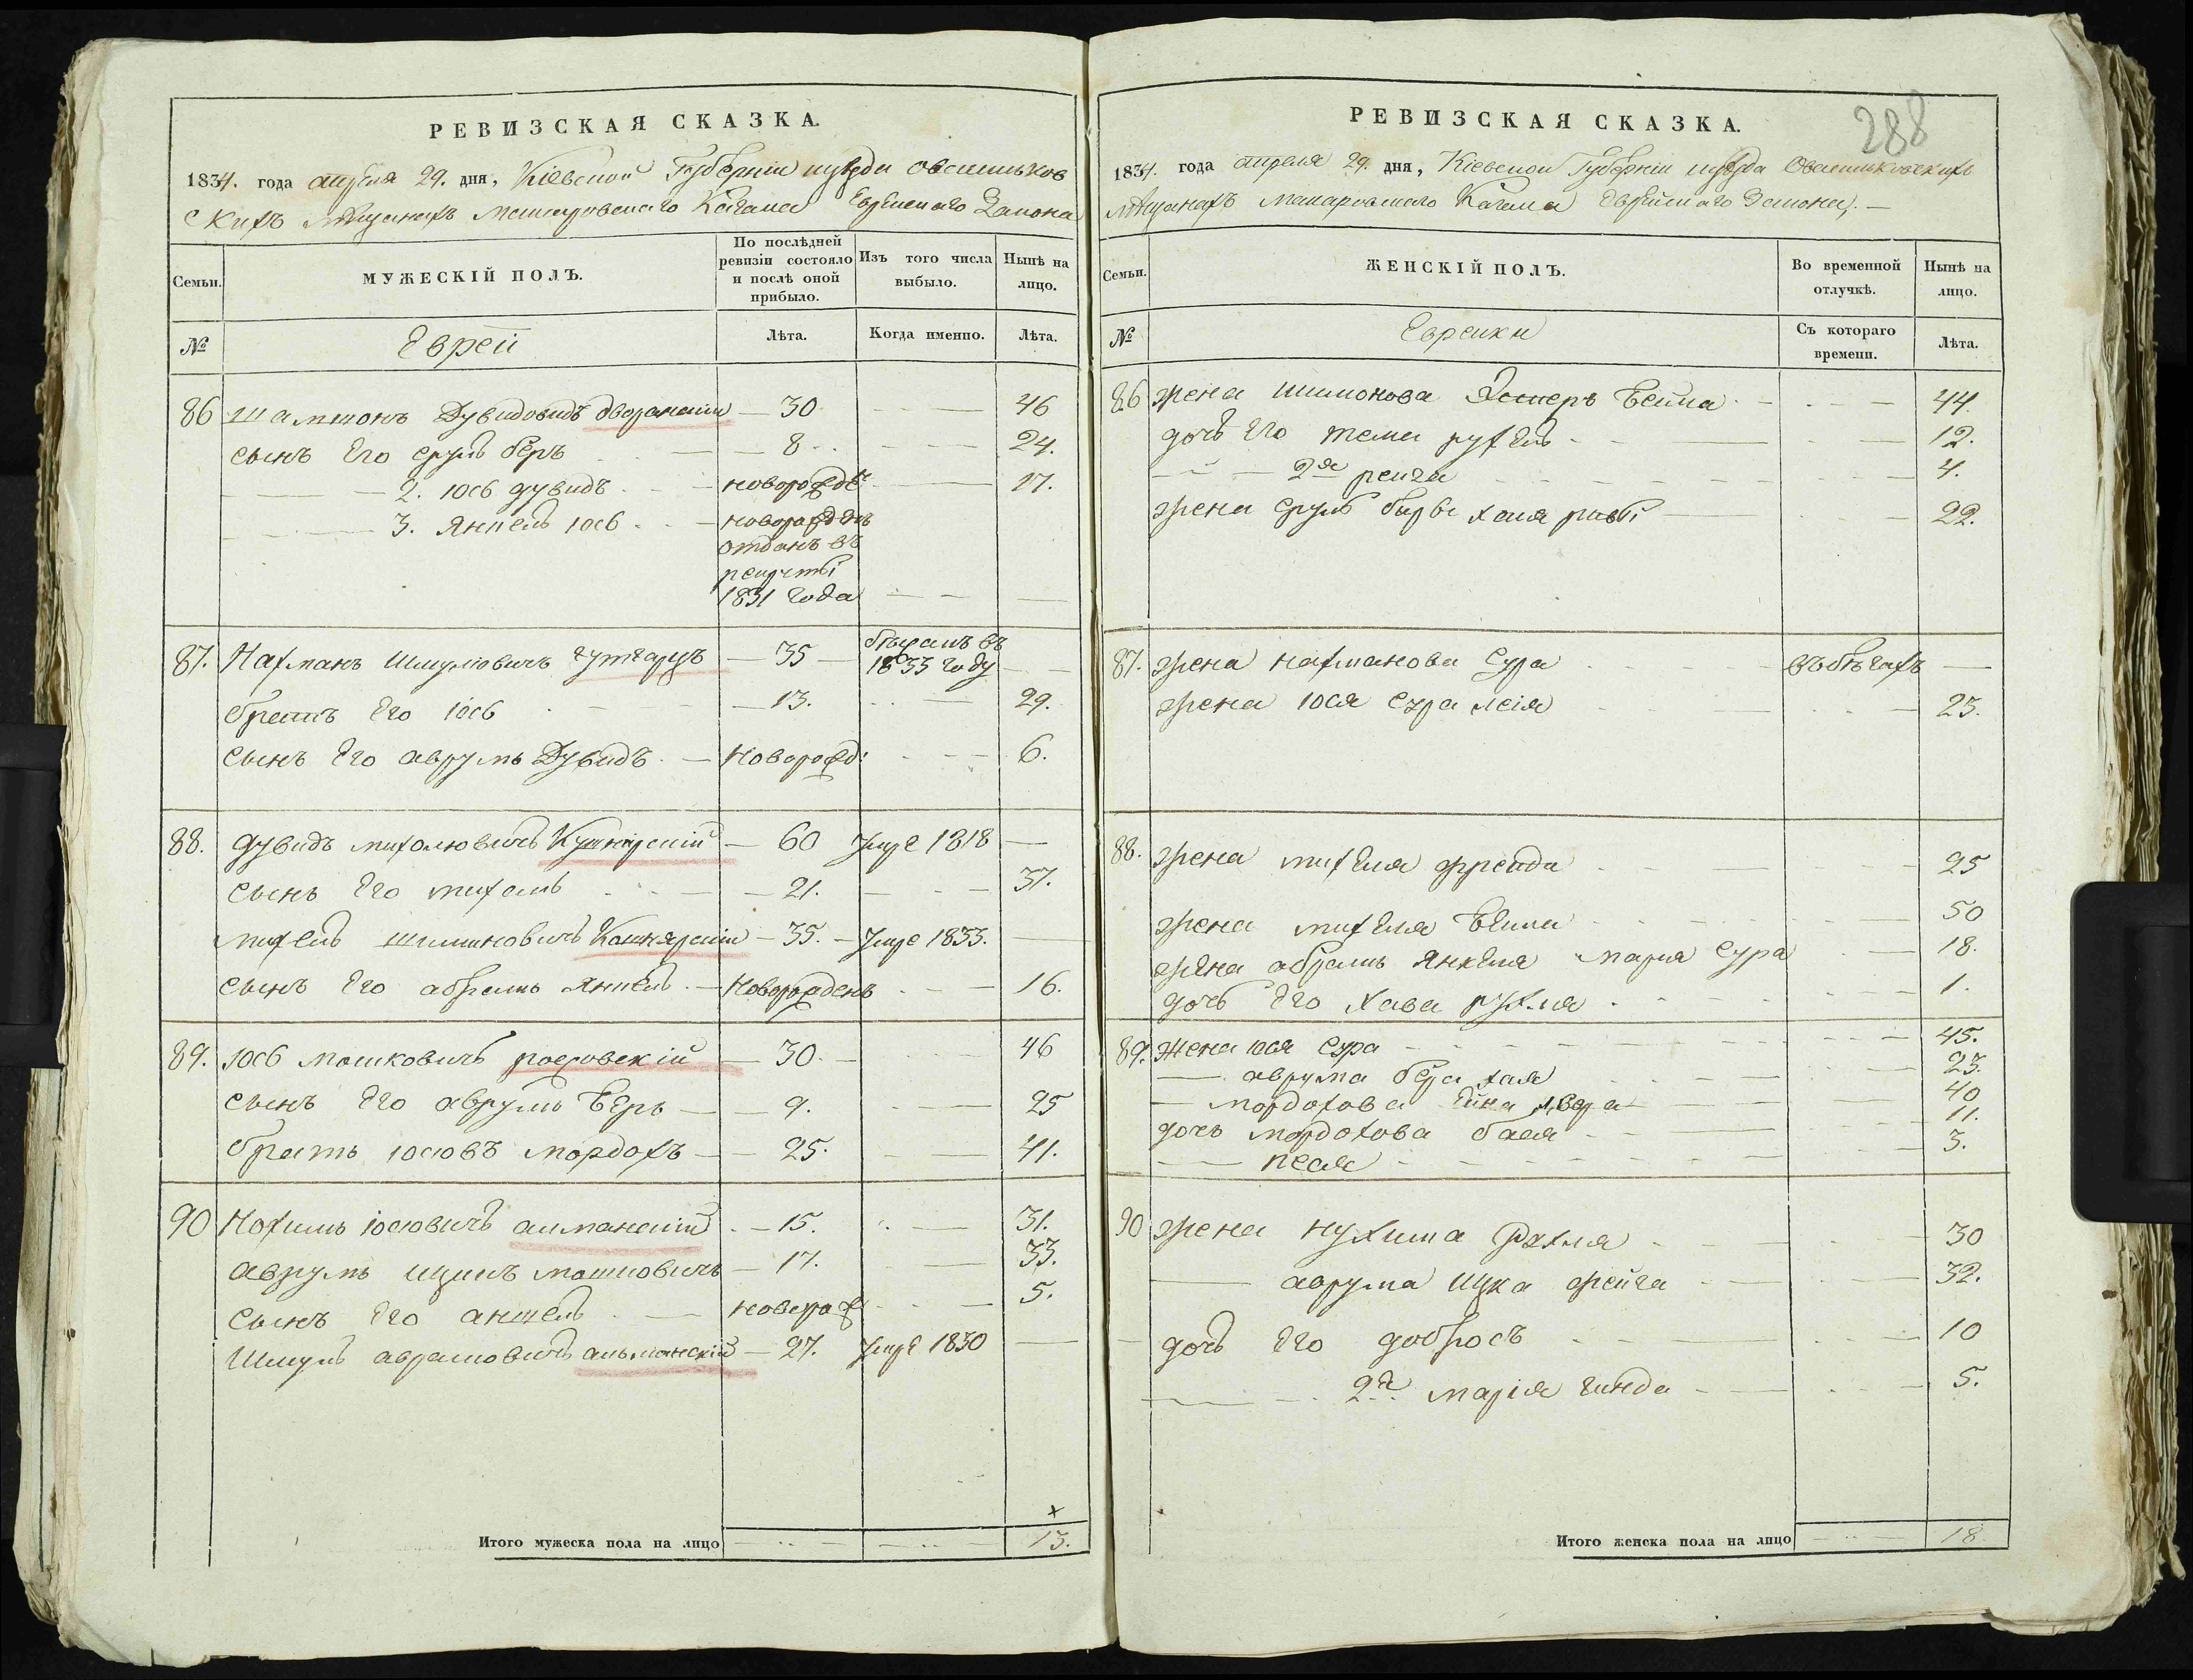 РЕВИЗСКАЯ СКАЗКА.
1834. года апреля 29. дня, Кіевской Губерніи уезда
скихъ Мѣщанахъ Макаровскаго Кагала Еврейскаго Закона
Семьи.
МУЖЕСКІЙ ПОЛЪ.
По послѣдней ревизіи состояло и послѣ оной прибыло.
Изъ того числа выбыло.
Нынѣ на лицо.
№
Еврей
Лѣта.
Когда именно.
Лѣта.
86 Шамшонъ Дувидовичъ — 30 — 46
сынъ Его Срулъ беръ — 8 — 24.
— 2. Іосъ дувидъ — новорожд — 17.
— 3. Янкель Іосъ — новорожденъ
отданъ въ
рекруты
1831 года — —
87. Нахманъ Шмулювичъ — 35 — бѣжалъ въ
1833 году —
братъ Его Іось — 13. — 29.
сынъ Его аврумъ Дувидъ — Новорожд: — 6.
88. дувидъ михолювичъ Кушнірскій — 60 Умре 1818 —
сынъ Его михель — 21. — 37.
михель шимановичъ — 35. — Умре 1833. —
сынъ Его абрамъ Янкель — Новорожденъ — 16.
89. Іось мошковичъ росовскій — 30. — 46
сынъ Его аврумъ Беръ — 9. — 25
братъ Іосювъ мордохъ — 25. — 41.
90 Нохимъ Іосювичъ алманскій — 15. — 31.
аврумъ ицикъ мошковичъ — 17. — 33.
сынъ Его аншель — новорож — 5.
Шмуль аврамовичъ альманскій — 27. Умре 1830 —
Итого мужеска пола на лицо — 13.
288
РЕВИЗСКАЯ СКАЗКА.
1834. года апреля 29. дня, Кіевской Губерніи уезда
Мѣщанахъ Макаровскаго Кагала Еврейскаго Закона. —
Семьи.
ЖЕНСКІЙ ПОЛЪ.
Во временной отлучкѣ.
Нынѣ на лицо.
№
Еврейки
Съ котораго времени.
Лѣта.
86 жена шимонова Бейла — 44.
дочь Его тема рухель — 12.
— 2я рейза — 4.
жена Сруль бера хая — 22.
87. жена нахманова Сура — въ бѣгахъ —
жена Іося Сура лея — 23.
88. жена михеля фрейда — 25
жена михеля Бейла — 50
жена абрамъ Янкеля марья Сура — 18.
дочь Его хава рухля — 1.
89. жена Іося Сура — 45.
— аврума бера хая — 23.
— мордохова — 40
дочь мордохова бася — 11.
— песя — 3.
90 жена нухима Рахля — 30
— аврума ицка фейга — 32.
дочь Его добрось — 10
— 2я марія гинда — 5.
Итого женска пола на лицо — 18